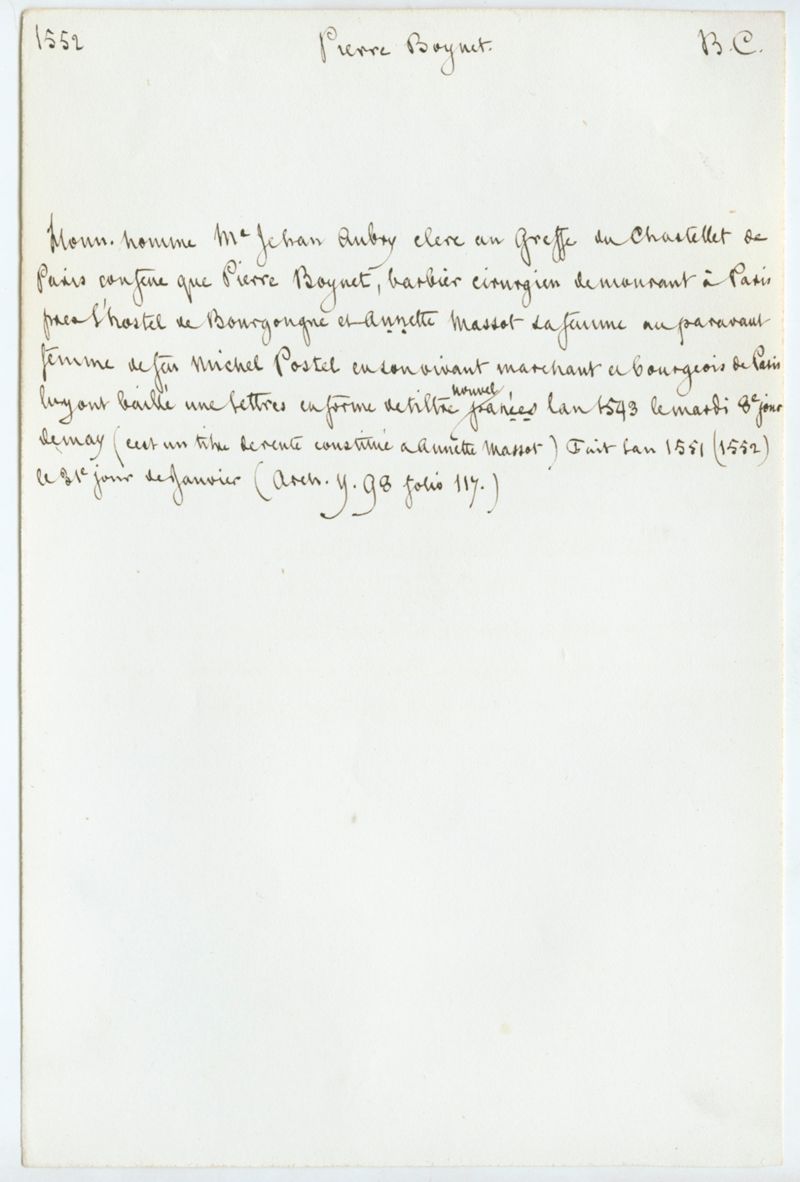 1552 Pierre Boynet. B.C.
Honn. homme Me Jehan Aubry clerc au Greffe du Chastellet de
Paris confesse que Pierre Boynet, barbier cirurgien demourant à Paris
près l'hostel de Bourgongne et Annette Massot sa femme au paravant
femme de feu Michel Postel en son vivant marchant et bourgeois de Paris
luy ont baillé une lettres en forme de tiltre nouvel lan 1543 le mardi 8e jour
de may (cest un titre de rente constitué a Annette Massot) Fait lan 1551 (1552)
le 31e jour de Janvier (Arch. y. 98 folio 117.)